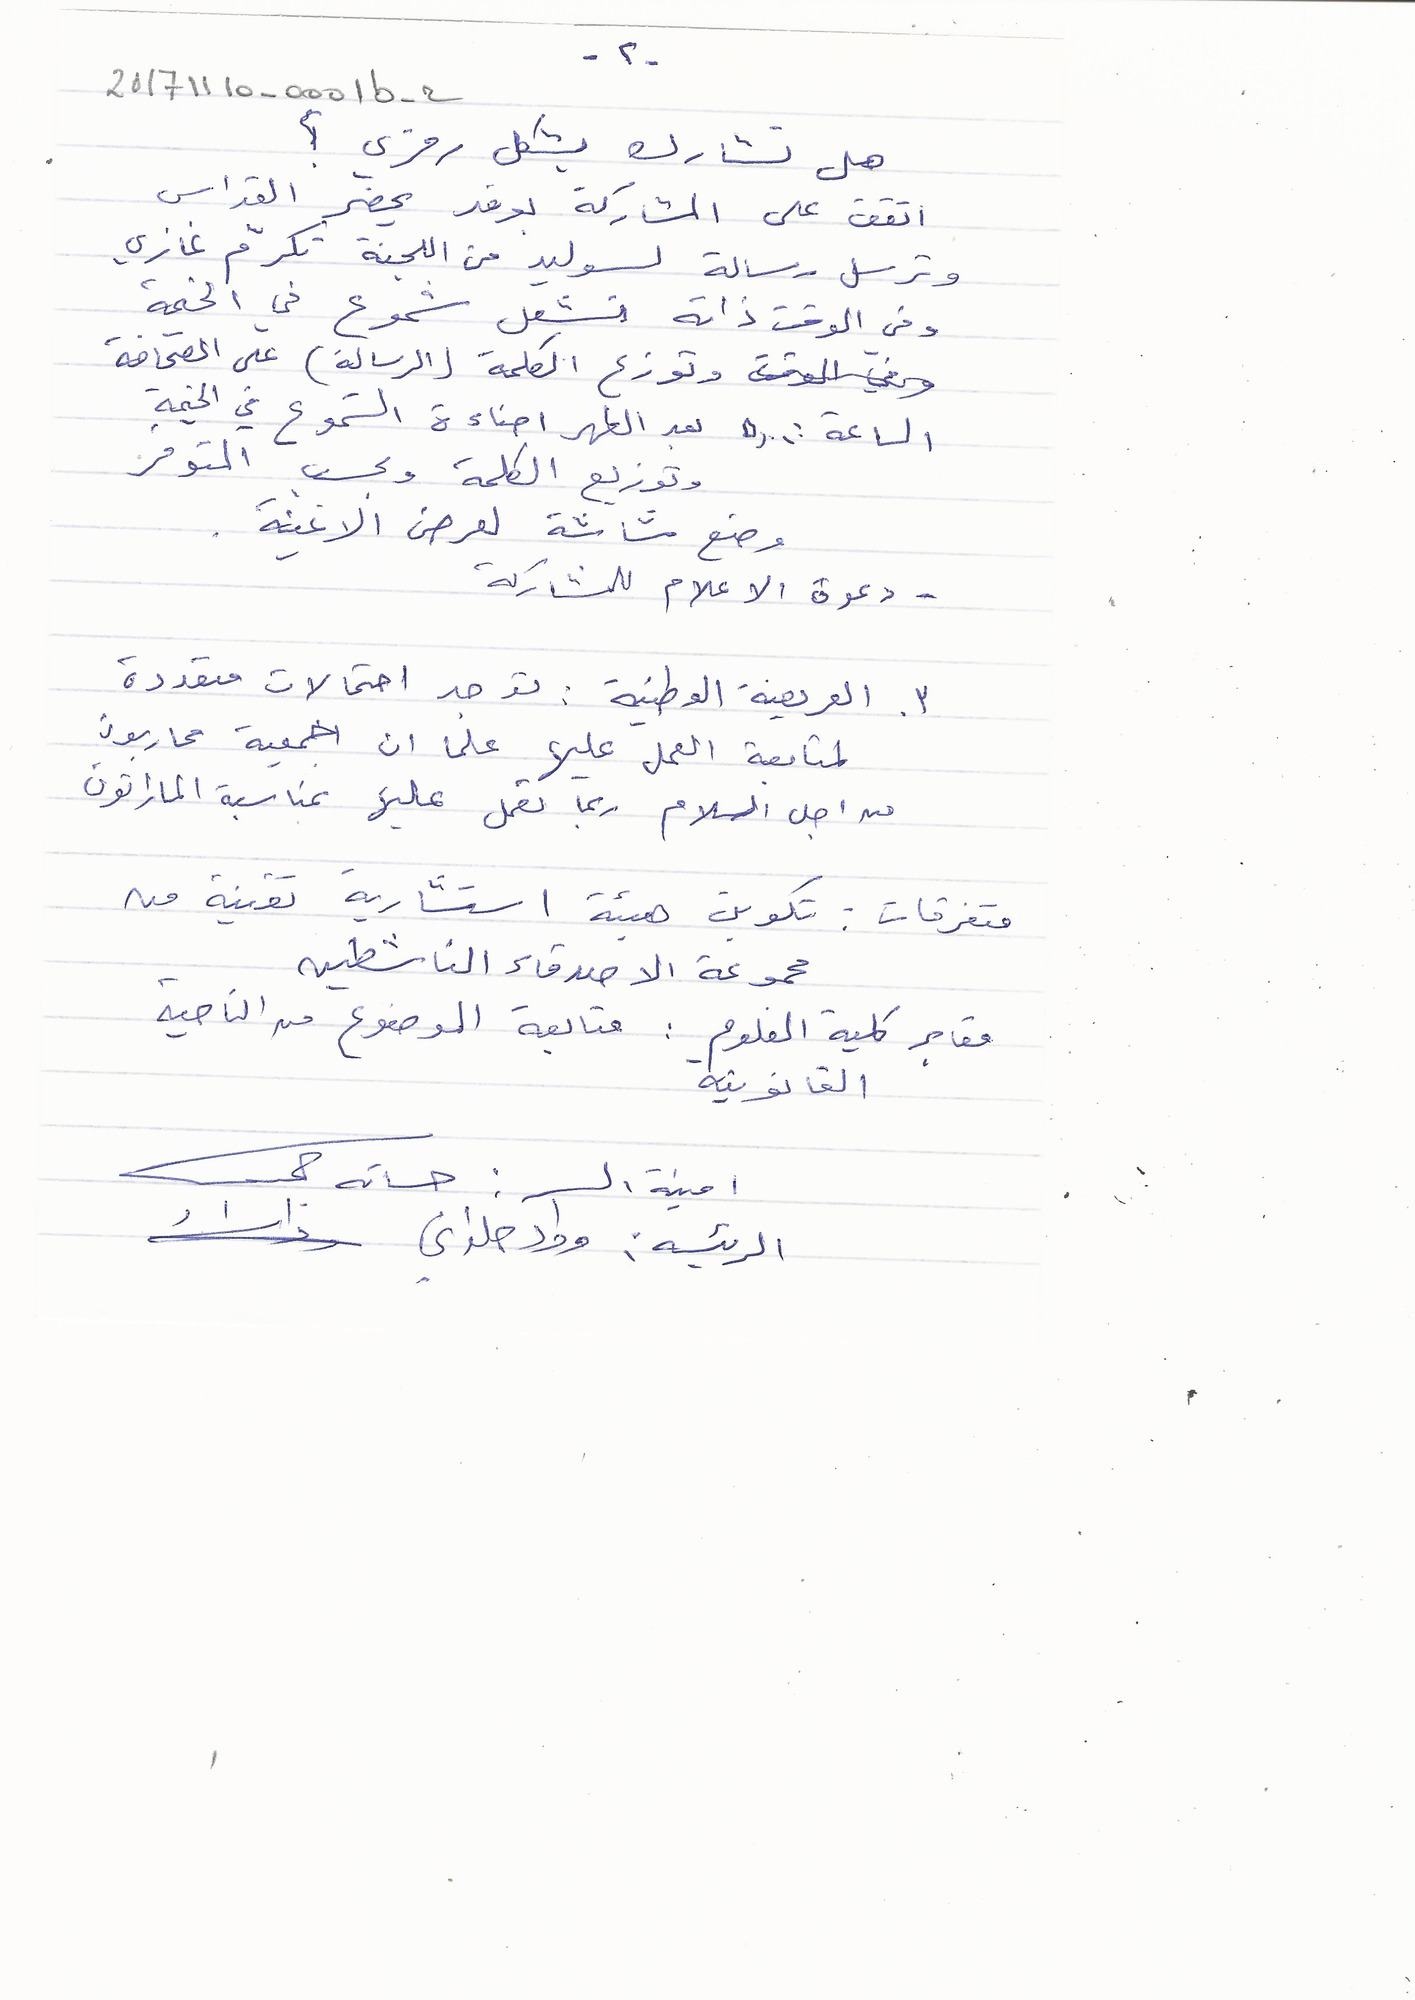 - ٢ -
20171110-0001b-2
هل نشارك بشكل رمزي ؟
اتفق على المشاركة بوفد يحضر القداس
وترسل رسالة لسوليد من اللجنة تكرّم غازي
وفي الوقت ذاته تشعل شموع في الخيمة
وفي الوقت وتوزع الكلمة (الرسالة) على الصحافة
الساعة بعد الظهر اضاءة الشموع في الخيمة
وتوزيع الكلمة وبحسب المتوفر
وضع شاشة لعرض الاغنية .
- دعوة الاعلام للمشاركة
٣. العريضة الوطنية : توجد احتمالات متعددة
لمتابعة العمل عليها علما ان جمعية محاربون
من اجل السلام ربما تعمل عليها بمناسبة الماراتون
متفرقات : تكوين هيئة استشارية تقنية من
مجموعة الاصدقاء الناشطين
مقابر كلية العلوم : متابعة الموضوع من الناحية
القانونية
امينة السر :
الرئيسة : وداد حلواني